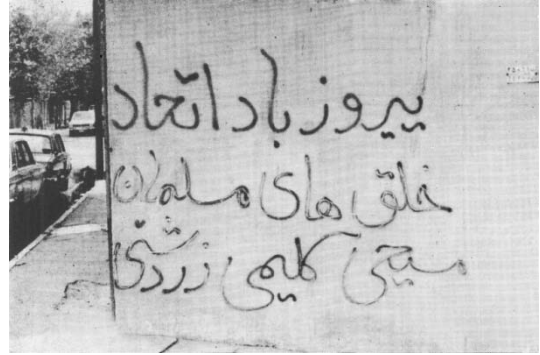 پیروز باد اتحاد
خلق های مسلمان
مسیحی کلیمی زردشتی